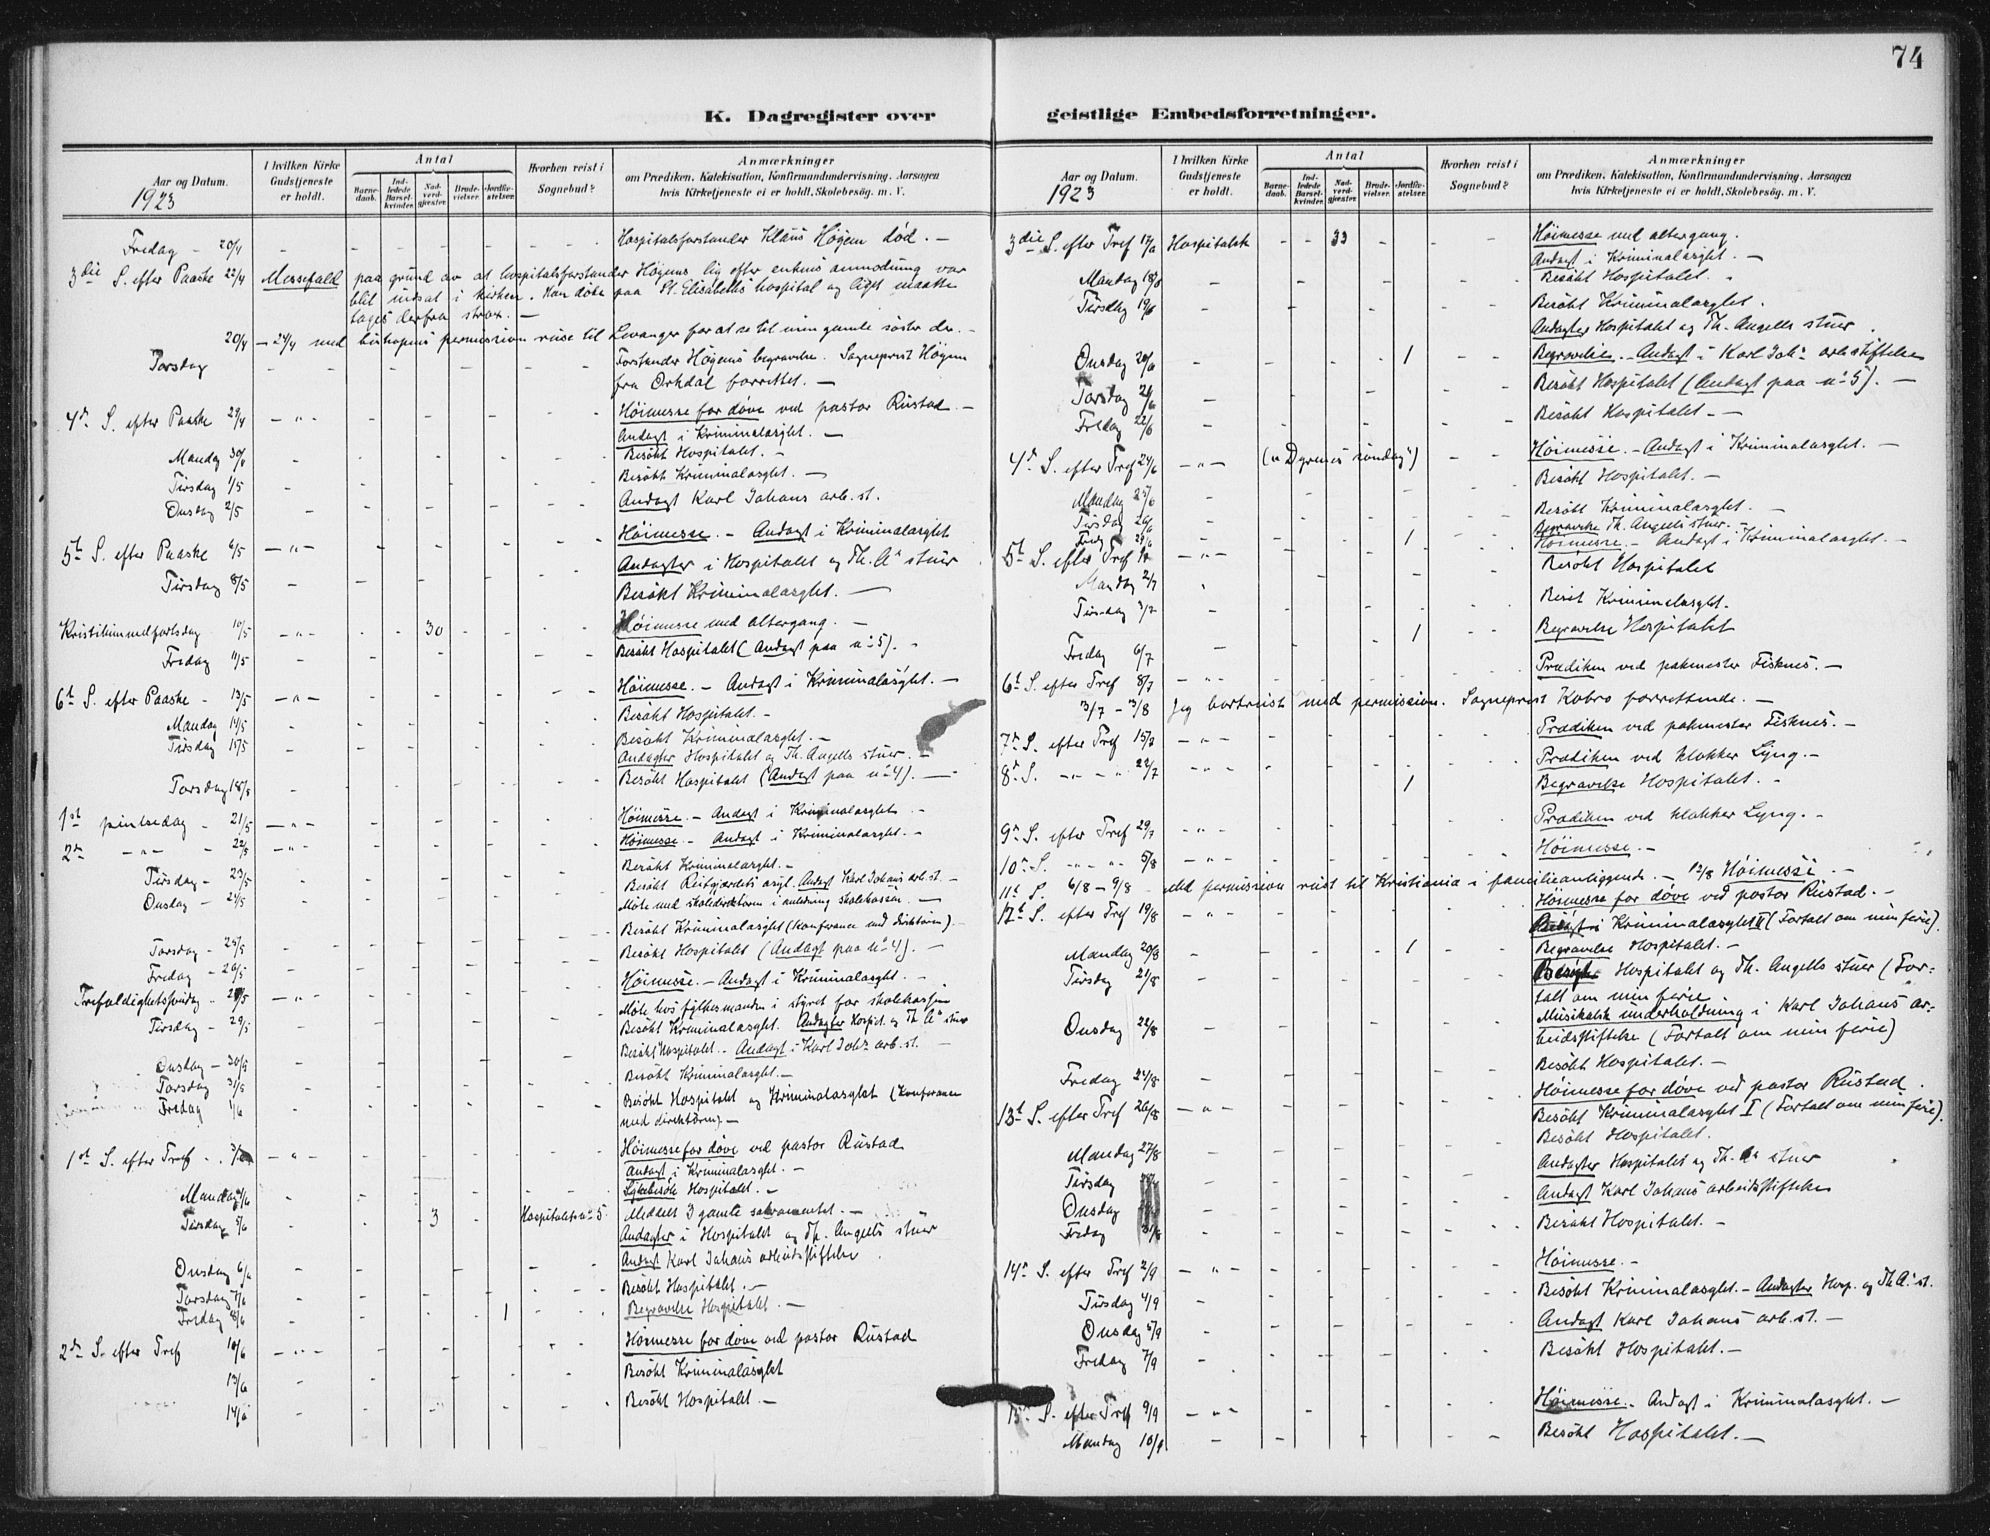 74
K. Dagregister over
Aar og Datum.
1923
I hvilken Kirke Gudstjeneste er holdt.
Antal
Barnedaab.
Indledede Barselkvinder.
Nadverdgjæster.
Brudevielser.
Jordfæstelser.
Hvorhen reist i Sognebud?
Anmærkninger
om Prædiken, Katekisation, Konfirmandundervisning. Aarsagen
hvis Kirketjeneste ei er holdt. Skolebesøg. m. V.
Fredag - 20/4 Hospitalsforstander Klaus Høgem død. -
3die S. efter Paaske 22/4 Messefald paa grund av at hospitalsforstander Høgems lig efter enkens anmodning var
blit indsat i kirken. Han døde paa St. Elisabeths hospital og liget maatte
tages derfra strax. -
20/4 - 24/4 med biskopens permission reise til Levanger for at se til min gamle søster der. -
Torsdag Forstander Høgems begravelse. Sogneprest Høgem
fra Orkdal forrettet. -
4de S. efter Paaske 29/4 - " - Høimesse for døve ved pastor Rustad. -
Andagt i Kriminalasylet. -
Mandag 30/4 Besøkt Hospitalet. -
Tirsdag 1/5 Besøkt Kriminalasylet. -
Onsdag 2/5 Andagt Karl Johans arb. st.
5te S. efter Paaske 6/5 - " - Høimesse. - Andagt i Kriminalasylet
Tirsdag 8/5 Andagter i Hospitalet og Th. A's stuer
Besøkt Kriminalasylet. -
Kristi himmelfartsdag 10/5 - " - 30 Høimesse med altergang. -
Fredag 11/5 Besøkt Hospitalet (Andagt paa no 5). -
6te S. efter Paaske - 13/5 - " - Høimesse. - Andagt i Kriminalasylet. -
Mandag 14/5 Besøkt Hospitalet. -
Tirsdag 15/5 Besøkt Kriminalasylet. -
Andagter Hospitalet og Th. Angells stuer. -
Torsdag Besøkt Hospitalet (Andagt paa no 4). -
1ste pintsedag - 21/5 - " - Høimesse. - Andagt i Kriminalasylet -
2den - " - 22/5 - " - Høimesse. - Andagt i Kriminalasylet. -
Tirsdag - 23/5 Besøkt Kriminalasylet. -
Besøkt Reitgjærdets asyl. Andagt Karl Johans arb. st. -
Onsdag - 24/5 Møte med skoledirektøren i anledning skolekassen. -
Besøkt Kriminalasylet (Konferance med direktøren). -
Torsdag - 25/5 Besøkt Hospitalet (Andagt paa no 4). -
Fredag - 26/5 Høimesse. - Andagt i Kriminalasylet. -
Trefoldighetssøndag - - " - Møte hos fylkesmanden i styret for skolekasjen
Tirsdag - 29/5 Besøkt Kriminalasylet. Andagter Hospit. og Th A's stuer
Besøkt Hospitalet. - Andagt i Karl Johs arb. st. -
Onsdag - 30/5 Besøkt Kriminalasylet. -
Torsdag 31/5 Besøkt Hospitalet og Kriminalasylet (Konferance
Fredag 1/6 med direktøren). -
1ste S. efter Tref - - " - Høimesse for døve ved pastor Rustad
Andagt i Kriminalasylet. -
Mandag 4/6 Sykebesøk Hospitalet. -
Tirsdag 5/6 3 Hospitalets no 5. Meddelt 3 gamle sakramentet. -
Andagter i Hospitalet og Th. Angells stuer
Onsdag 6/6 Andagt Karl Johans arbeidsstiftelse
Torsdag 7/6 Besøkt Hospitalet. -
Fredag 8/6 1 Begravelse Hospitalet. -
2den S. efter Tref 10/6 - " - Høimesse for døve ved pastor Rustad
13/6 Besøkt Kriminalasylet
14/6 Besøkt Hospitalet. -
geistlige Embedsforretninger.
Aar og Datum.
1923
I hvilken Kirke Gudstjeneste er holdt.
Antal
Barnedaab.
Indledede Barselkvinder.
Nadverdgjæster.
Brudevielser.
Jordfæstelser.
Hvorhen reist i Sognebud?
Anmærkninger
om Prædiken, Katekisation, Konfirmandundervisning. Aarsagen
hvis Kirketjeneste ei er holdt. Skolebesøg. m. V.
3die S. efter Tref 17/6 Hospitalsk 33 Høimesse med altergang.
Andagt i Kriminalasylet. -
Mandag 18/6 Besøkt Hospitalet. -
Tirsdag 19/6 Besøkt Kriminalasylet.
Andagter Hospitalet og Th. Angells stuer.
Onsdag 20/6 1 Begravelse. - Andagt i Karl Johs arb.stiftelse
Torsdag 21/6 Besøkt Hospitalet (Andagt paa no 5). -
Fredag 22/6 Besøkt Hospitalet. -
4de S. efter Tref 24/6 - " - ("Dyrenes søndag") Høimesse. - Andagt i Kriminalasylet. -
Mandag 25/6 Besøkt Hospitalet. -
Tirsdag 26/6 Besøkt Kriminalasylet. -
Fredag 29/6 1 Begravelse Th. Angells stuer. -
5te S. efter Tref - " - Høimesse. - Andagt i Kriminalasylet. -
Mandag 2/7 Besøkt Hospitalet
Tirsdag 3/7 Besøkt Kriminalasylet.
Fredag 6/7 1 Begravelse Hospitalet
6te S. efter Tref 8/7 - " - Prædiken ved pakmester Fisknes. -
3/7 - 3/8 Jeg bortreist med permission. Sogneprest Kobro forrettende. -
7de S. efter Tref 15/7 - " - Prædiken ved pakmester Fisknes. -
8de S. - " - " 22/7 - " - Prædiken ved klokker Ljng. -
1 Begravelse Hospitalet. -
9de S. efter Tref 29/7 - " - Prædiken ved klokker Ljng. -
10de S. - " - " 5/8 - " - Høimesse. -
11te S. 6/8 - 9/8 Med permission reist til Kristiania i familieanliggende. - 12/8 Høimesse. -
12te S. efter Tref 19/8 - " - Høimesse for døve ved pastor Rustad. -
i Kriminalasylet II (Fortalt om min ferie).
Mandag 20/8 1 Begravelse Hospitalet. -
Tirsdag 21/8 Hospitalet og Th. Angells stuer (For-
talt om min ferie
Onsdag 22/8 Musikalsk underholdning i Karl Johans ar-
beidsstiftelse (Fortalt om min ferie)
Fredag 24/8 Besøkt Hospitalet. -
13te S. efter Tref 26/8 - " - Høimesse for døve ved pastor Rustad.
Besøkt Kriminalasylet I (Fortalt om min ferie).
Mandag 27/8 Besøkt Hospitalet.
Tirsdag Andagter Hospitalet og Th. A's stuer
Onsdag Andagt Karl Johans arbeidsstiftelse
Fredag 31/8 Besøkt Hospitalet. -
14de S. efter Tref 2/9 - " - Høimesse. -
Tirsdag 4/9 Besøkt Kriminalasylet. - Andagter Hosp. og Th A's st.
Onsdag 5/9 Andagt Karl Johans arb. st. -
Fredag 7/9 Besøkt Hospitalet. -
15de S. efter Tref 9/9 - " - Høimesse. - Andagt i Kriminalasylet. -
Mandag 10/9 Besøkt Hospitalet. -